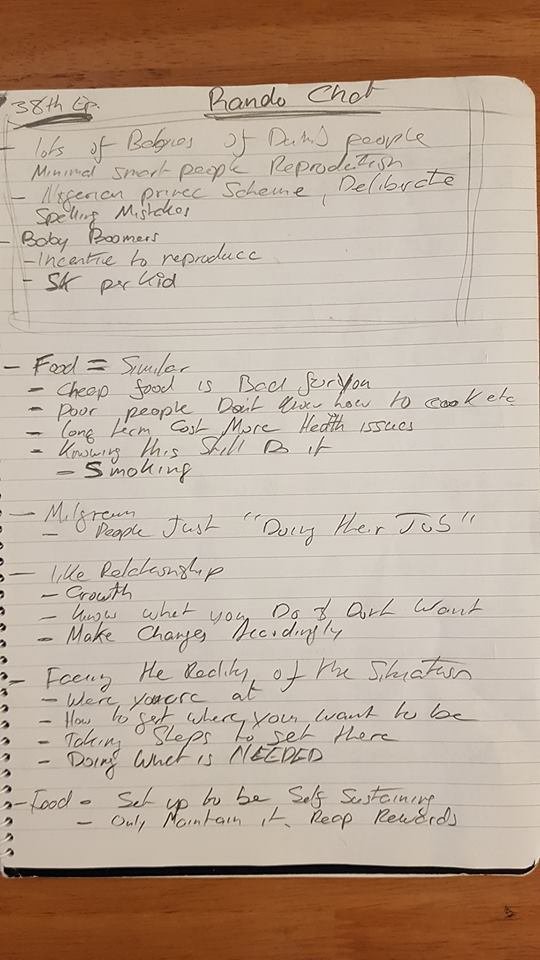 38th Ep. Rando Chat
- lots of Babies of Dumb people
Minimal smart people Reproduction
- Nigerian prince Scheme, Deliberate
Spelling Mistakes
- Baby Boomers
- Incentive to reproduce
- 5K per kid
- Food = Similar
- Cheap food is Bad for you
- Poor people Don't know how to cook etc
- Long term Cost More Health issues
- Knowing this Still Do it
- Smoking
- Milgram
- People Just "Doing their Job"
- like Relationship
- Growth
- Know what you Do & Don't Want
- Make Changes Accordingly
- Facing the Reality of the Situation
- Were youare at
- How to get where you want to be
- Taking Steps to get there
- Doing what is NEEDED
- Food - Set up to be Self Sustaining
- Only Maintain it, Reap Rewards